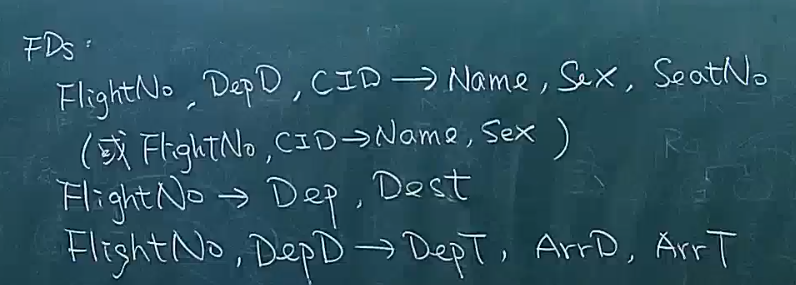 FDs:
FlightNo, DepD, CID → Name, Sex, SeatNo
(或 FlightNo, CID → Name, Sex)
FlightNo → Dep, Dest
FlightNo, DepD → DepT, ArrD, ArrT